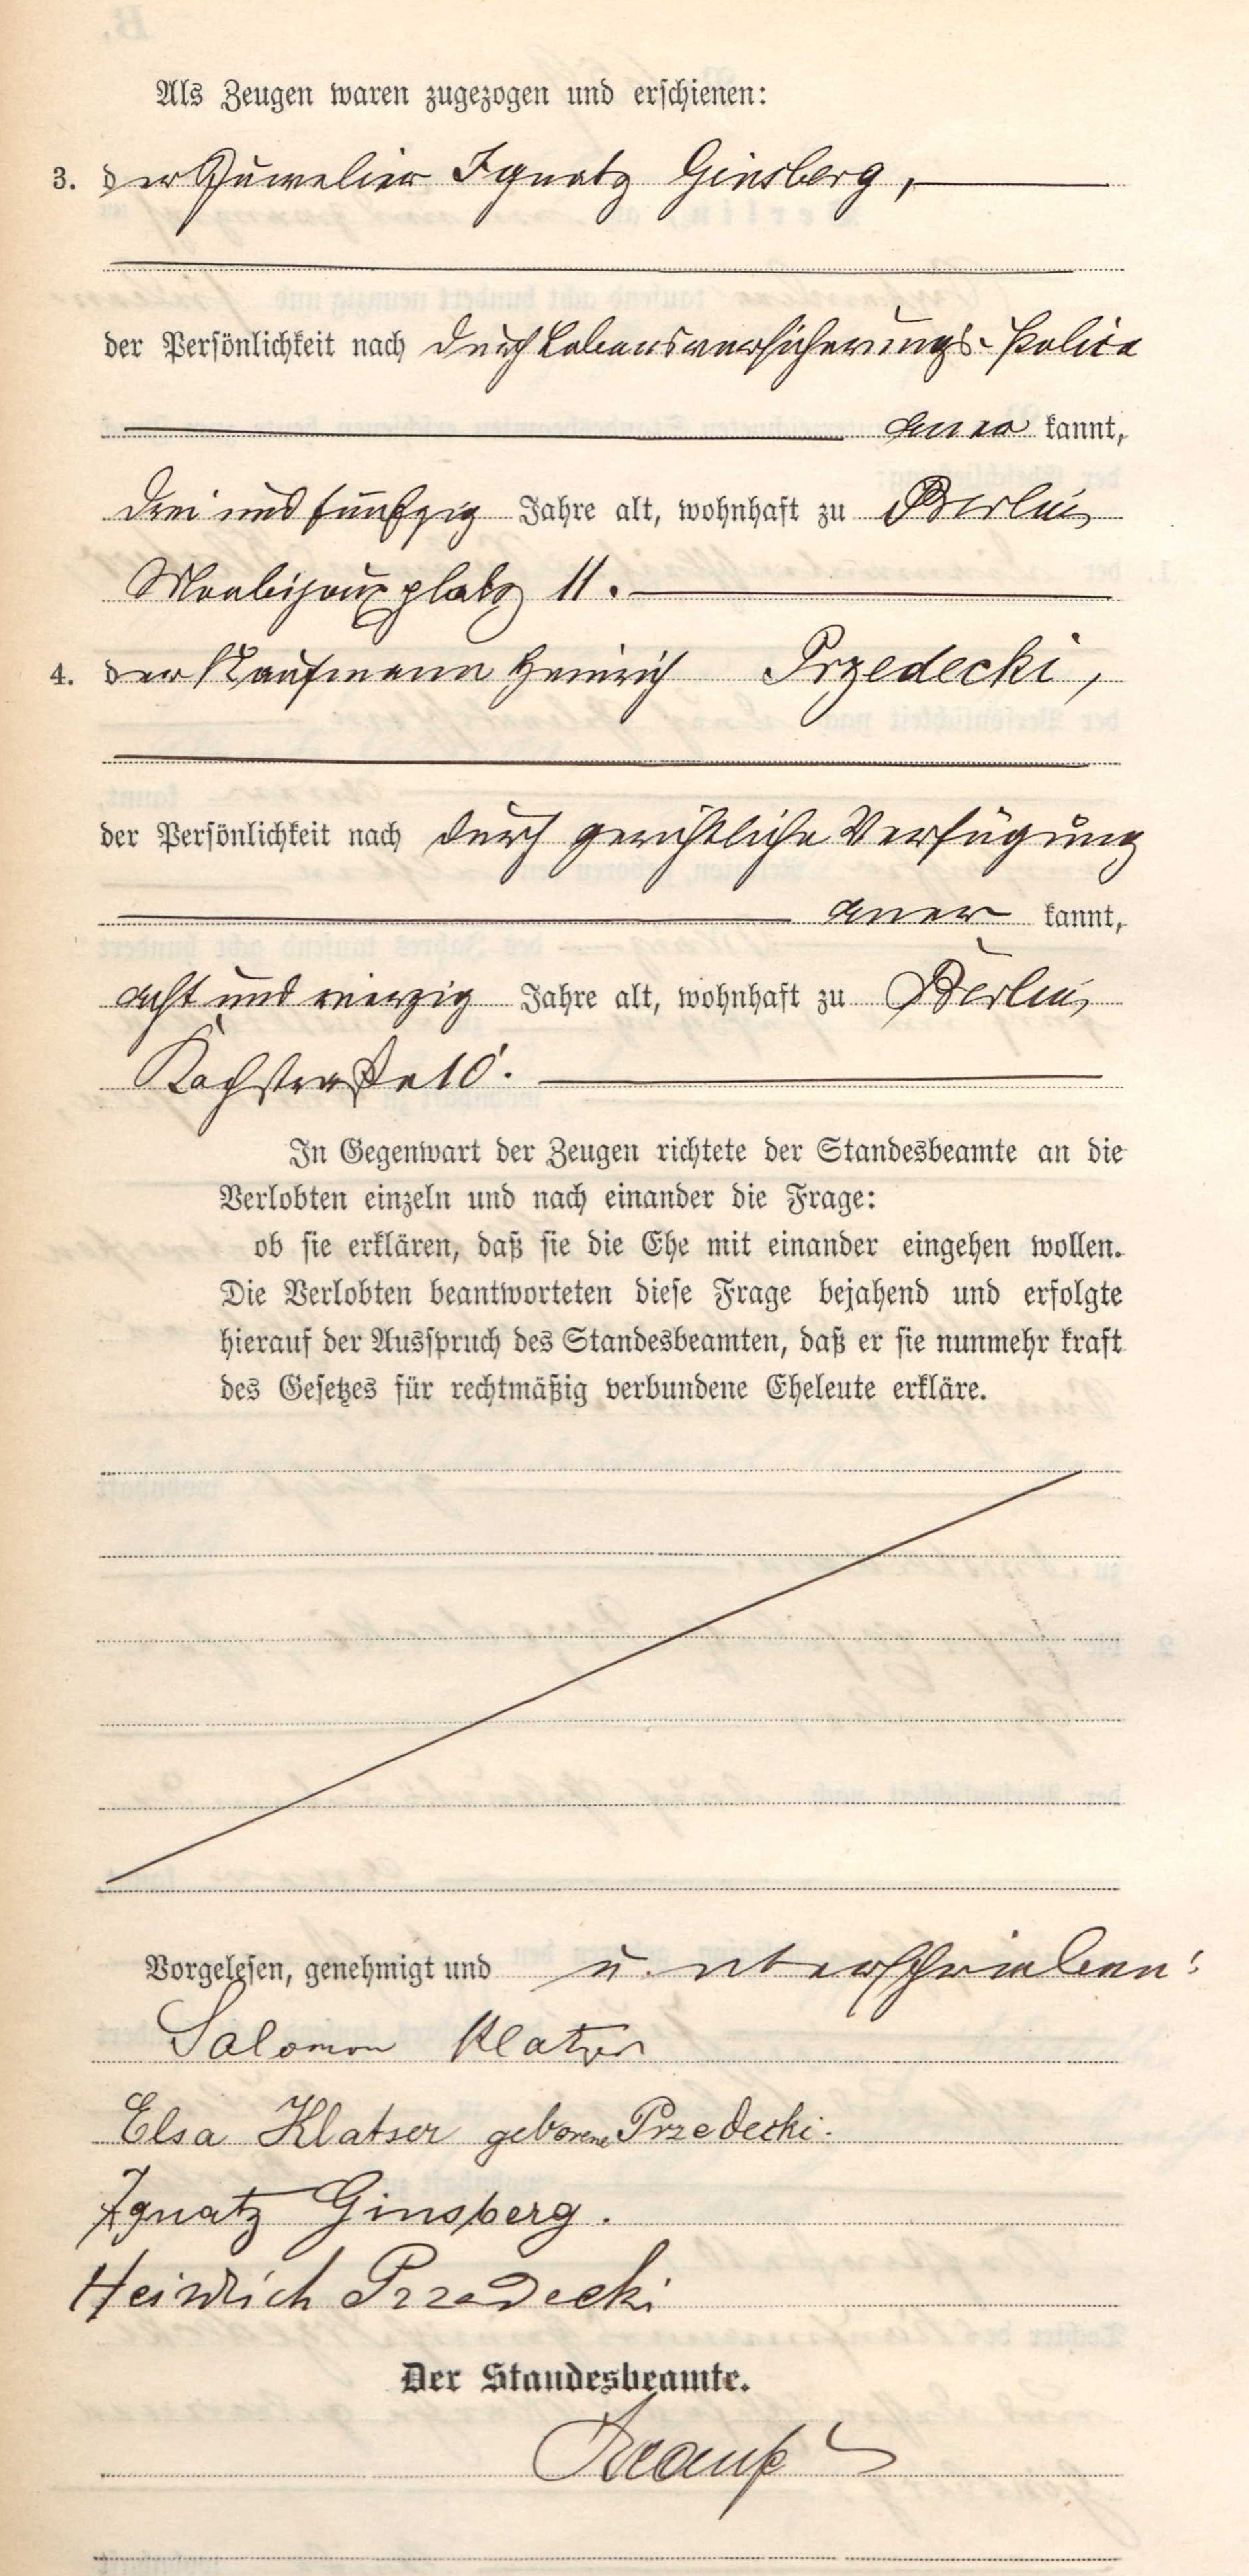 Als Zeugen waren zugezogen und erschienen:
3. der Juwelier Ignatz Ginsberg,
der Persönlichkeit nach durch Lebensversicherungs-Police
aner kannt,
drei und fünfzig Jahre alt, wohnhaft zu Berlin,
Monbijouplatz 11.
4. der Kaufmann Heinrich Przedecki,
der Persönlichkeit nach durch gerichtliche Verfügung
aner kannt,
acht und vierzig Jahre alt, wohnhaft zu Berlin,
Kochstraße 10.
In Gegenwart der Zeugen richtete der Standesbeamte an die
Verlobten einzeln und nach einander die Frage:
ob sie erklären, daß sie die Ehe mit einander eingehen wollen.
Die Verlobten beantworteten diese Frage bejahend und erfolgte
hierauf der Ausspruch des Standesbeamten, daß er sie nunmehr kraft
des Gesetzes für rechtmäßig verbundene Eheleute erkläre.
Vorgelesen, genehmigt und unterschrieben:
Salomon Klatser
Elsa Klatser geborene Przedecki.
Ignatz Ginsberg.
Heinrich Przedecki
Der Standesbeamte.